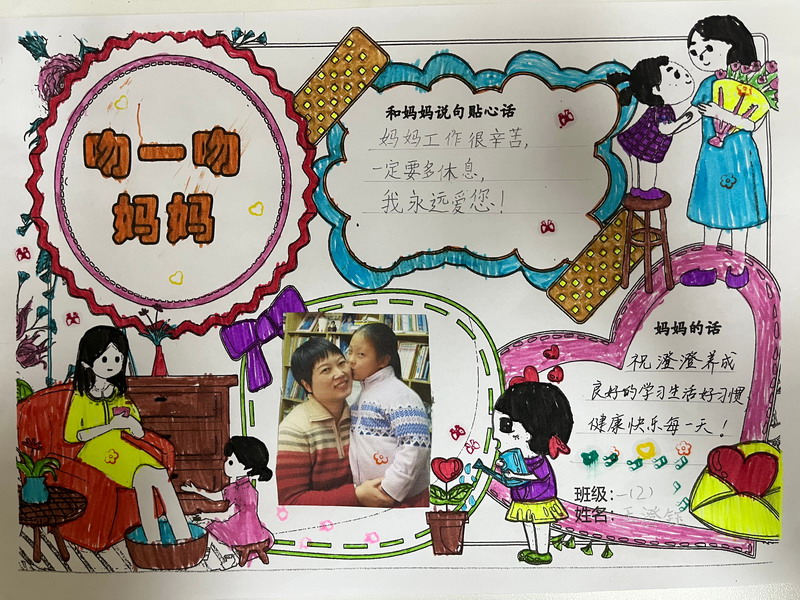 吻一吻
妈妈
和妈妈说句贴心话
妈妈工作很辛苦,
一定要多休息,
我永远爱您!
妈妈的话
祝澄澄养成
良好的学习生活好习惯
健康快乐每一天!
班级:一(2)
姓名: